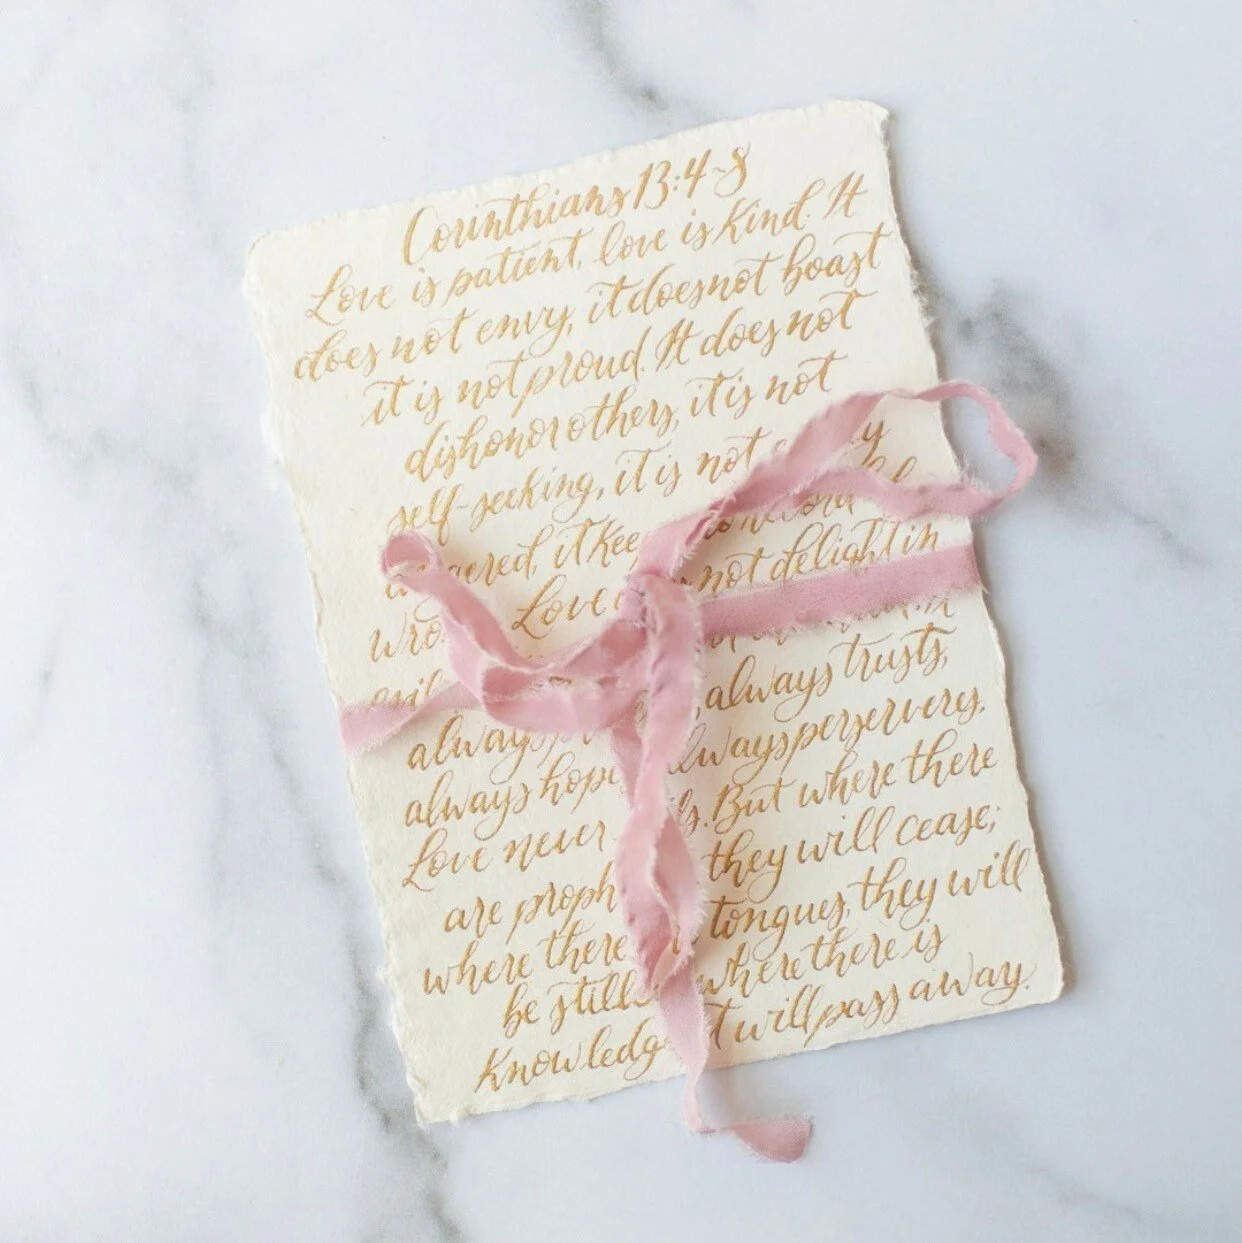 Corinthians 13:4-8
Love is patient, love is kind. It
does not envy, it does not boast
it is not proud. It does not
dishonor others, it is not
self-seeking, it is not
it no record
Love not delight in
always trusts,
always
always hope always perserveres.
Love never But where there
are they will cease;
where there tongues, they will
be where there is
knowledge will pass away.